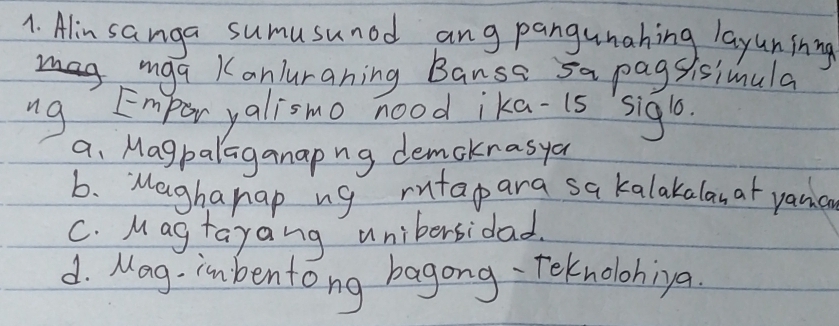 1. Alin sanga sumusunod ang pangunahing layunin ng
mag mga Kanluraning Bansa sa pagsisimula
ng Emperyalismo nood ika-15 siglo.
a. Magpalaganap ng demokrasya
b. Maghanap ng ruta para sa kalakalan at yaman
c. Magtayang unibersidad.
d. Mag-imbento ng bagong - Teknolohiya.